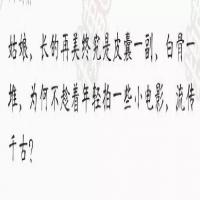 姑娘，长的再美终究是皮囊一副，白骨一
堆，为何不趁着年轻拍一些小电影，流传
千古？